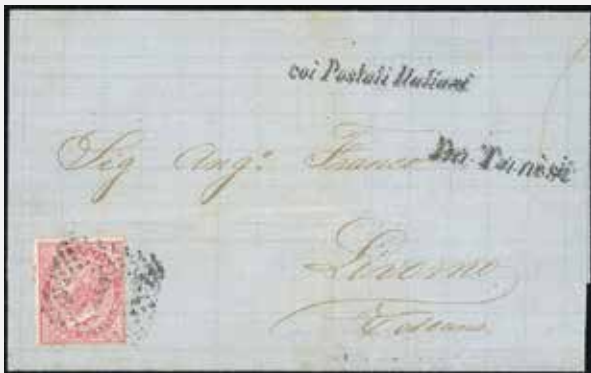 coi Postali Italiani
Da Tunisi
Sig Ang.º Franco
Livorno
Toscana